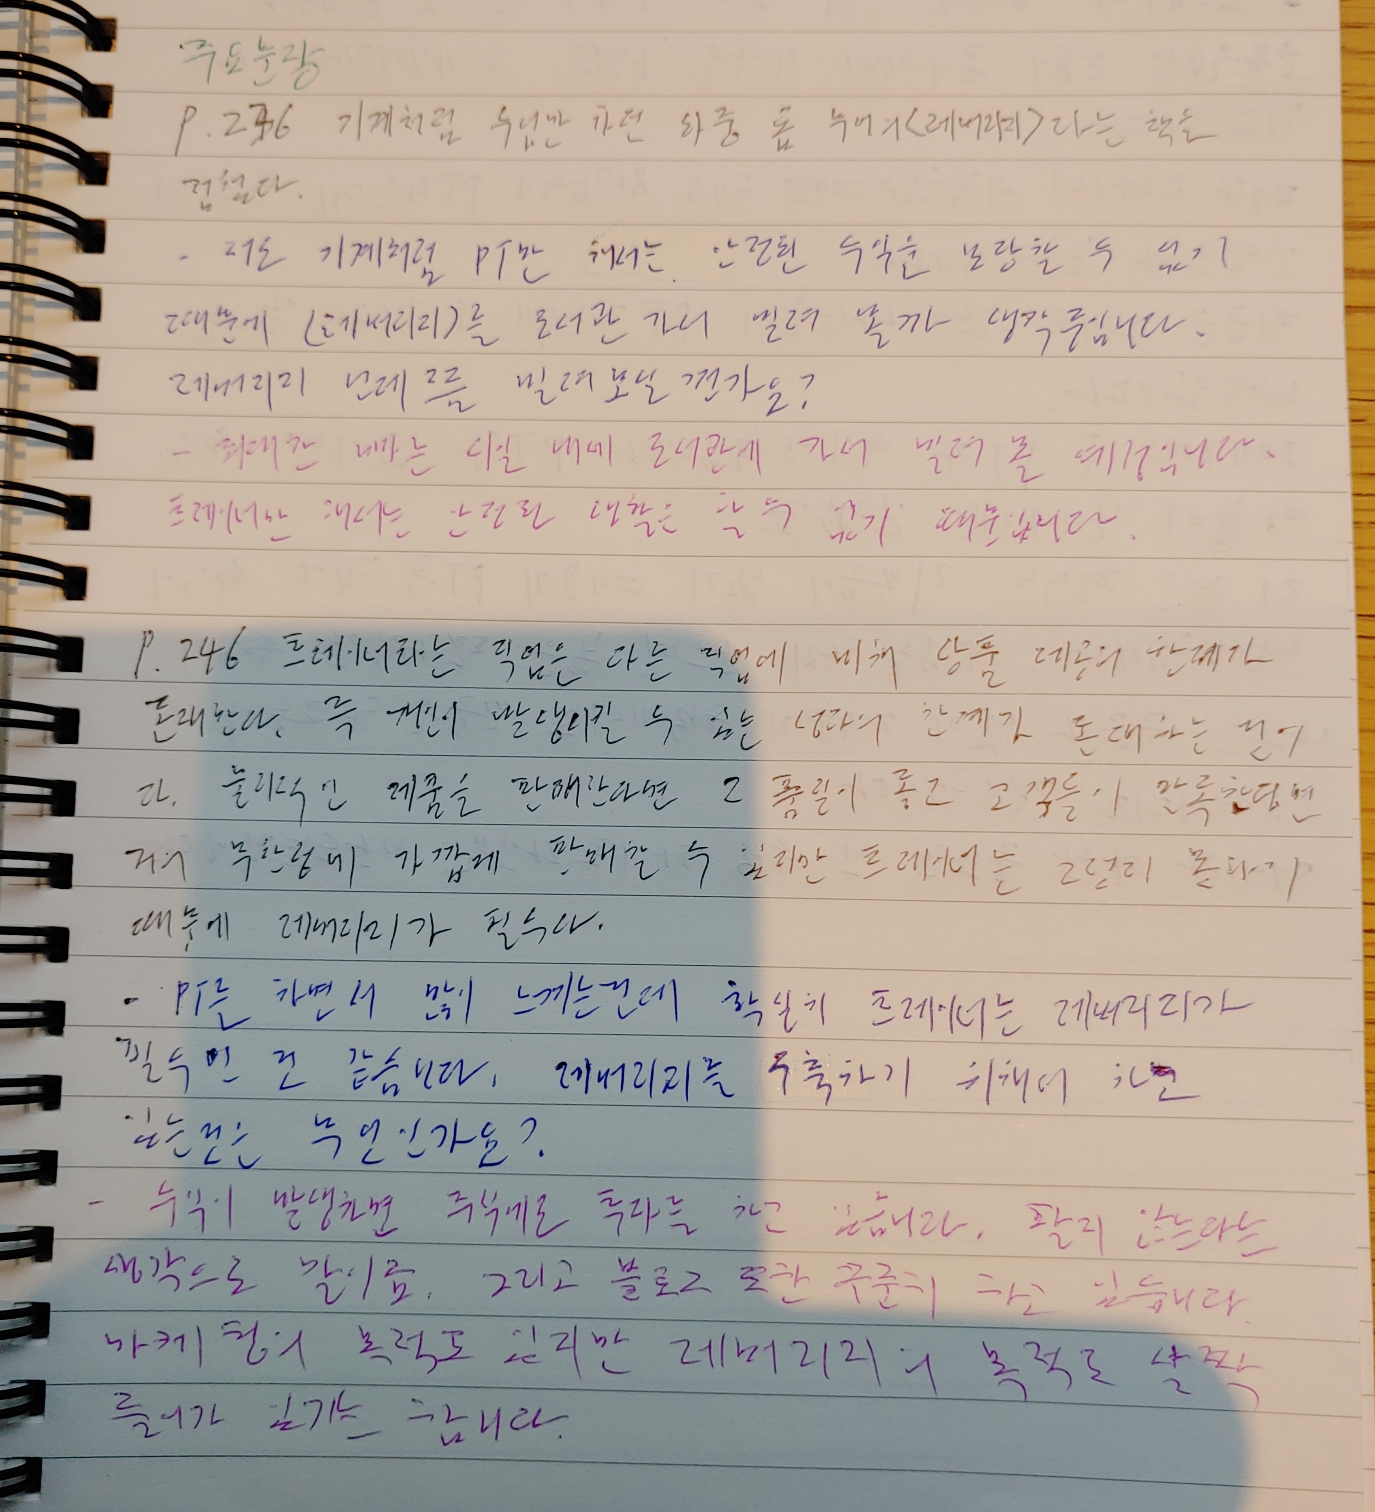 주요문장
P. 246 기계처럼 수업만 하던 와중 롭 무어의 <레버리지>라는 책을
접했다.
- 저도 기계처럼 PT만 해서는 안전된 수익을 보장할 수 없기
때문에 <레버리지>를 도서관 가서 빌려 볼까 생각중입니다.
레버리지 언제쯤 빌려보실 건가요?
- 최대한 빠른 시일 내에 도서관에 가서 빌려 볼 예정입니다.
트레이너만 해서는 안정된 생활은 할 수 없기 때문입니다.
P. 246 트레이너라는 직업은 다른 직업에 비해 상품 제공의 한계가
존재한다. 즉 개인이 발생시킬 수 있는 성과의 한계가 존재하는 것이
다. 물리적인 제품을 판매한다면 그 품질이 좋고 고객들이 만족한다면
거의 무한정에 가깝게 판매할 수 있지만 트레이너는 그렇지 못하기
때문에 레버리지가 필수다.
- PT를 하면서 많이 느끼는건데 확실히 트레이너는 레버리지가
필수인 것 같습니다. 레버리지를 구축하기 위해서 하고
있는것은 무엇인가요?
- 수익이 발생하면 주식에도 투자를 하고 있습니다. 팔지 않는다는
생각으로 말이죠. 그리고 블로그 또한 꾸준히 하고 있습니다.
마케팅의 목적도 있지만 레버리지의 목적도 살짝
들어가 있기는 합니다.